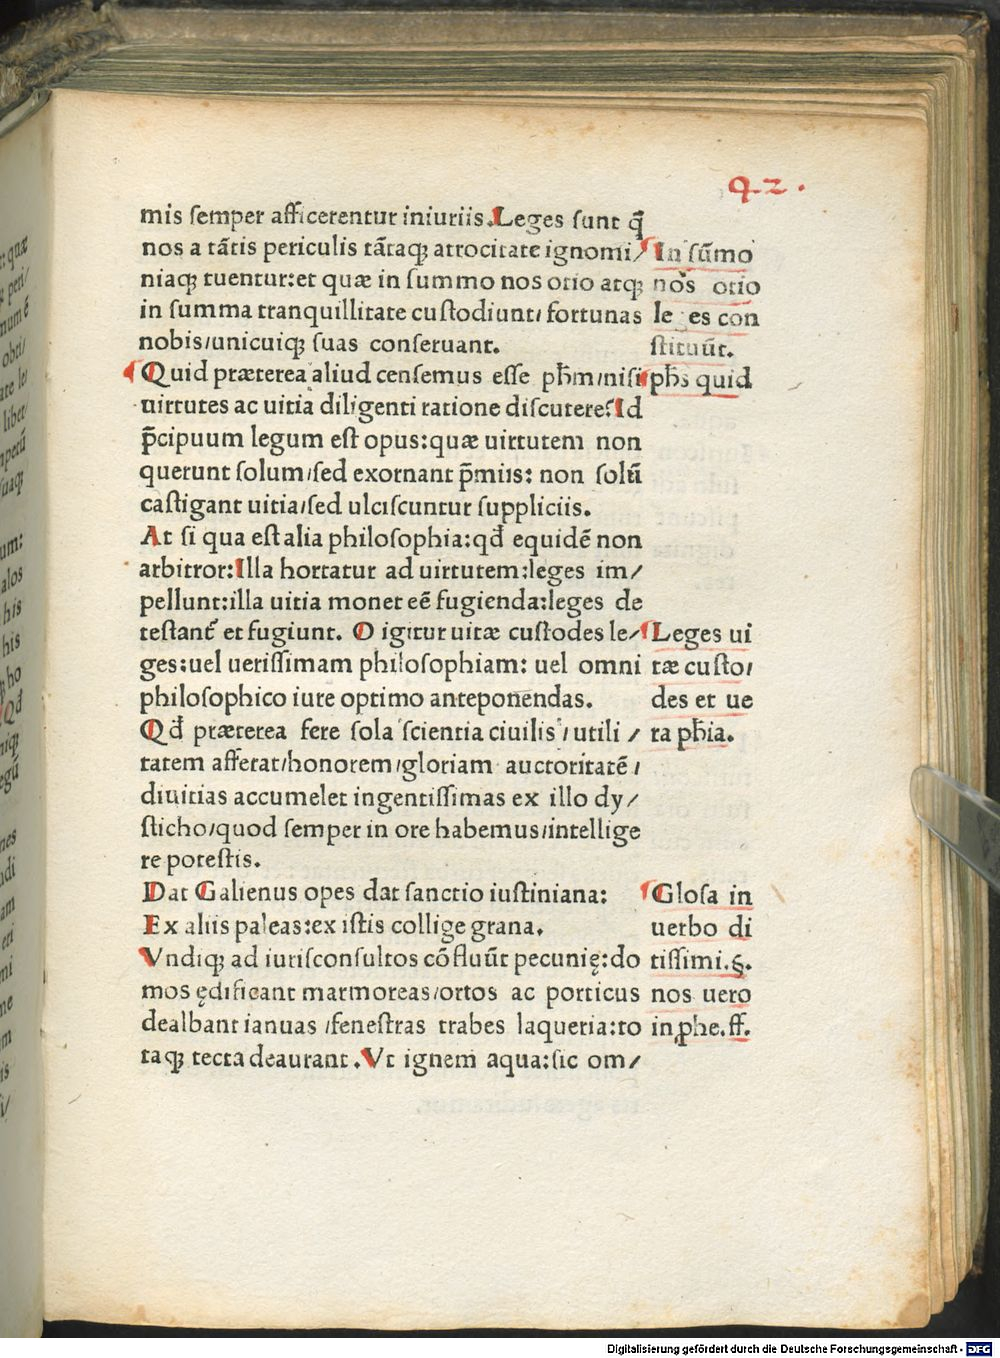 42.
mis semper afficerentur iniuriis. Leges sunt q̄
nos a tātis periculis tātaqꝫ atrocitate ignomi/
niaqꝫ tuentur: et quæ in summo nos otio atqꝫ
in summa tranquillitate custodiunt/ fortunas
nobis/ unicuiqꝫ suas conseruant.
Quid præterea aliud censemus esse pħm/ nisi
uirtutes ac uitia diligenti ratione discutere? Id
p̄cipuum legum est opus: quæ uirtutem non
querunt solum/ sed exornant p̄miis: non solū
castigant uitia/ sed ulciscuntur suppliciis.
At si qua est alia philosophia: qđ equidē non
arbitror: Illa hortatur ad uirtutem: leges im/
pellunt: illa uitia monet eē fugienda: leges de
testant᷑ et fugiunt. O igitur uitæ custodes le/
ges: uel uerissimam philosophiam: uel omni
philosophico iure optimo anteponendas.
Qđ præterea fere sola scientia ciuilis/ utili/
tatem afferat/ honorem/ gloriam auctoritatē/
diuitias accumulet ingentissimas ex illo dy/
sticho/ quod semper in ore habemus/ intellige
re potestis.
Dat Galienus opes dat sanctio iustiniana:
Ex aliis paleas: ex istis collige grana.
Vndiqꝫ ad iurisconsultos cōfluūt pecunię: do
mos ędificant marmoreas/ ortos ac porticus
dealbant ianuas/ fenestras trabes laqueria: to
taqꝫ tecta deaurant. Vt ignem aqua: sic om/
In sūmo
nos otio
leges con
stituūt.
pħs quid
Leges ui
tæ custo/
des et ue
ra pħia.
Glosa in
uerbo di
tissimi. §.
nos uero
in ꝓhe. ff.
quæ
peri/
obti/
libet/
um:
alos
his
his
ho
Qđ
niqꝫ
nes
udi
am
eri
mi
Digitalisierung gefördert durch die Deutsche Forschungsgemeinschaft - DFG